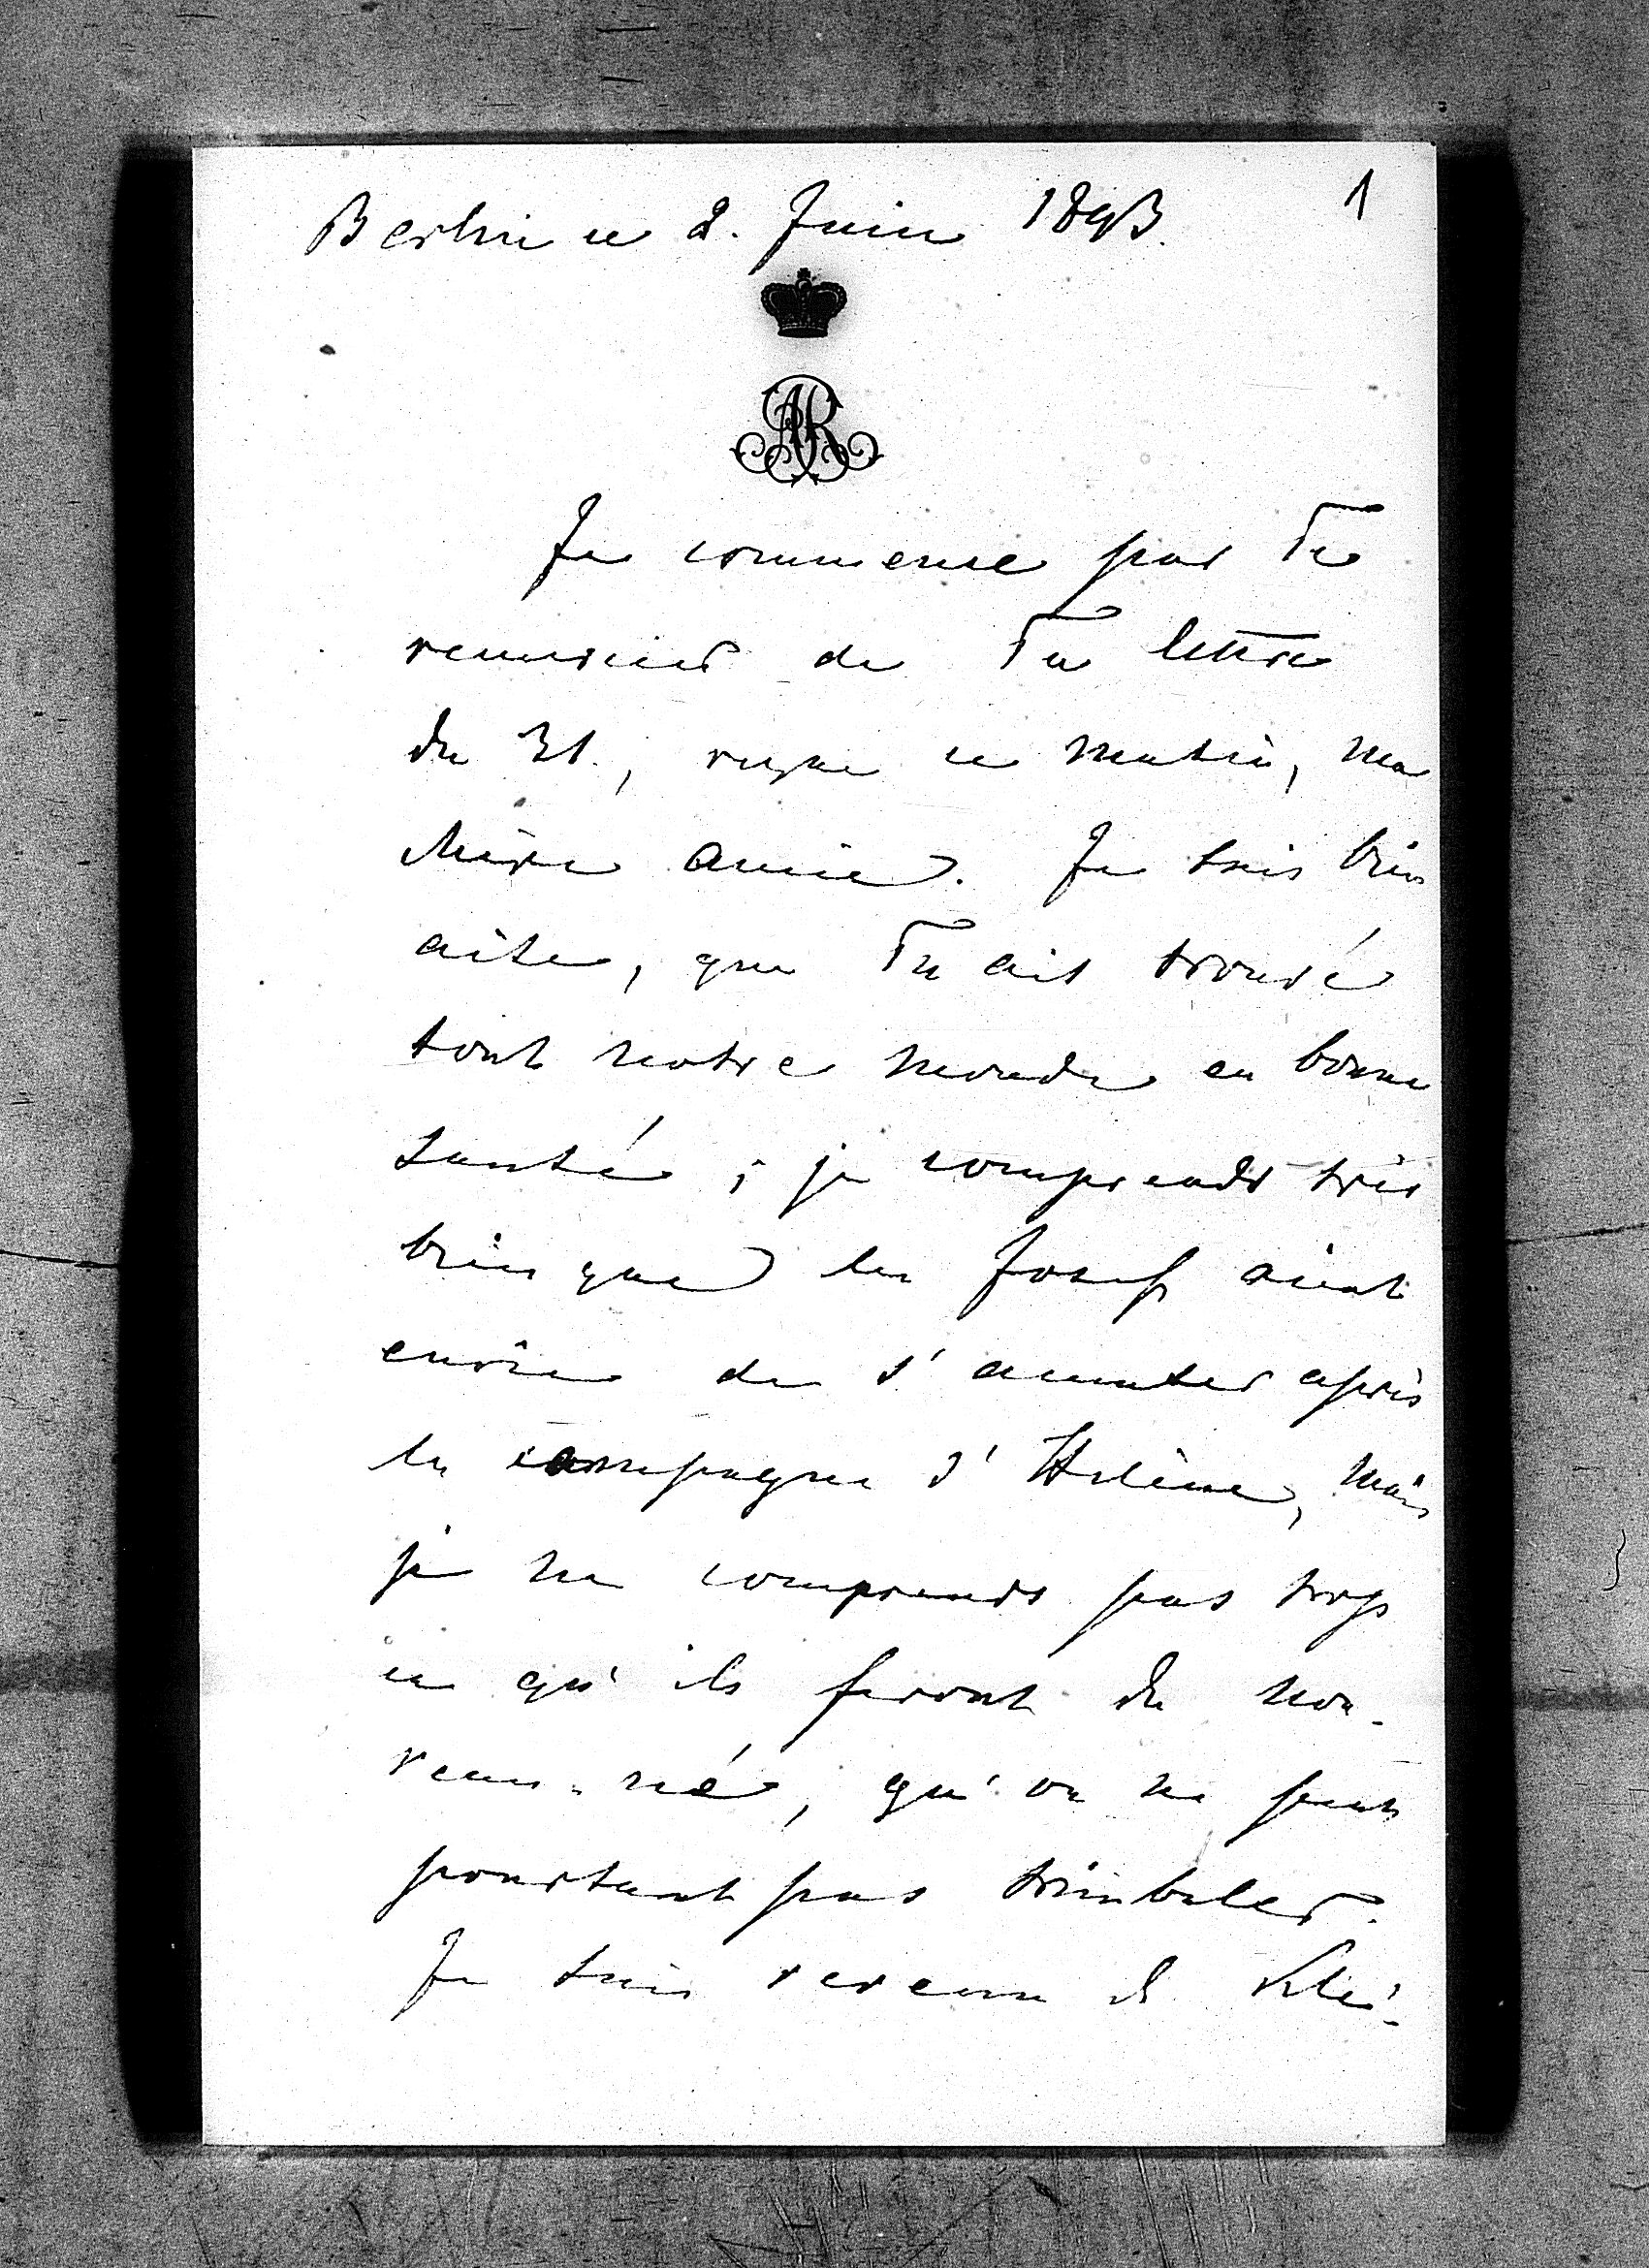 Berlin ce 2. Juin 1893.
1
AR
Je commence par Te
remercier de Ta lettre
du 31., reçue ce matin, ma
chère amie. Je suis bien
aise, que Tu ais trouvé
tout notre monde en bonne
santé ; je comprends très
bien que les Josef aient
envie de s'amuser après
la campagne d'Hélène, mais
je ne comprends pas trop
ce qu'ils feront du nou-
veau-né, qu'on ne peut
pourtant pas trimbaler.
Je suis revenu de Klei-